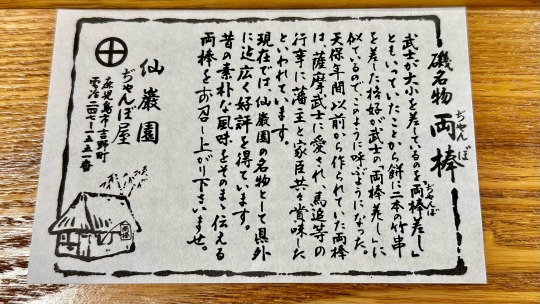 磯名物 両棒
ぢゃんぼ
武士が大小を差しているのを「両棒差し」
ぢゃんぼ
ともいっていたことから餅に二本の竹串
を差した格好が武士の「両棒差し」に
似ているのでこのように呼ぶようになった。
天保年間以前から作られていた両棒
は薩摩武士に愛され、馬追等の
行幸に藩主と家臣共々賞味した
といわれています。
現在では、仙巌園の名物として県外
に迄広く好評を得ています。
昔の素朴な風味をそのまゝ伝える
両棒をお召し上がり下さいませ。
仙巌園
ぢゃんぼ屋
鹿児島市吉野町
電話二四七ー一五五一番